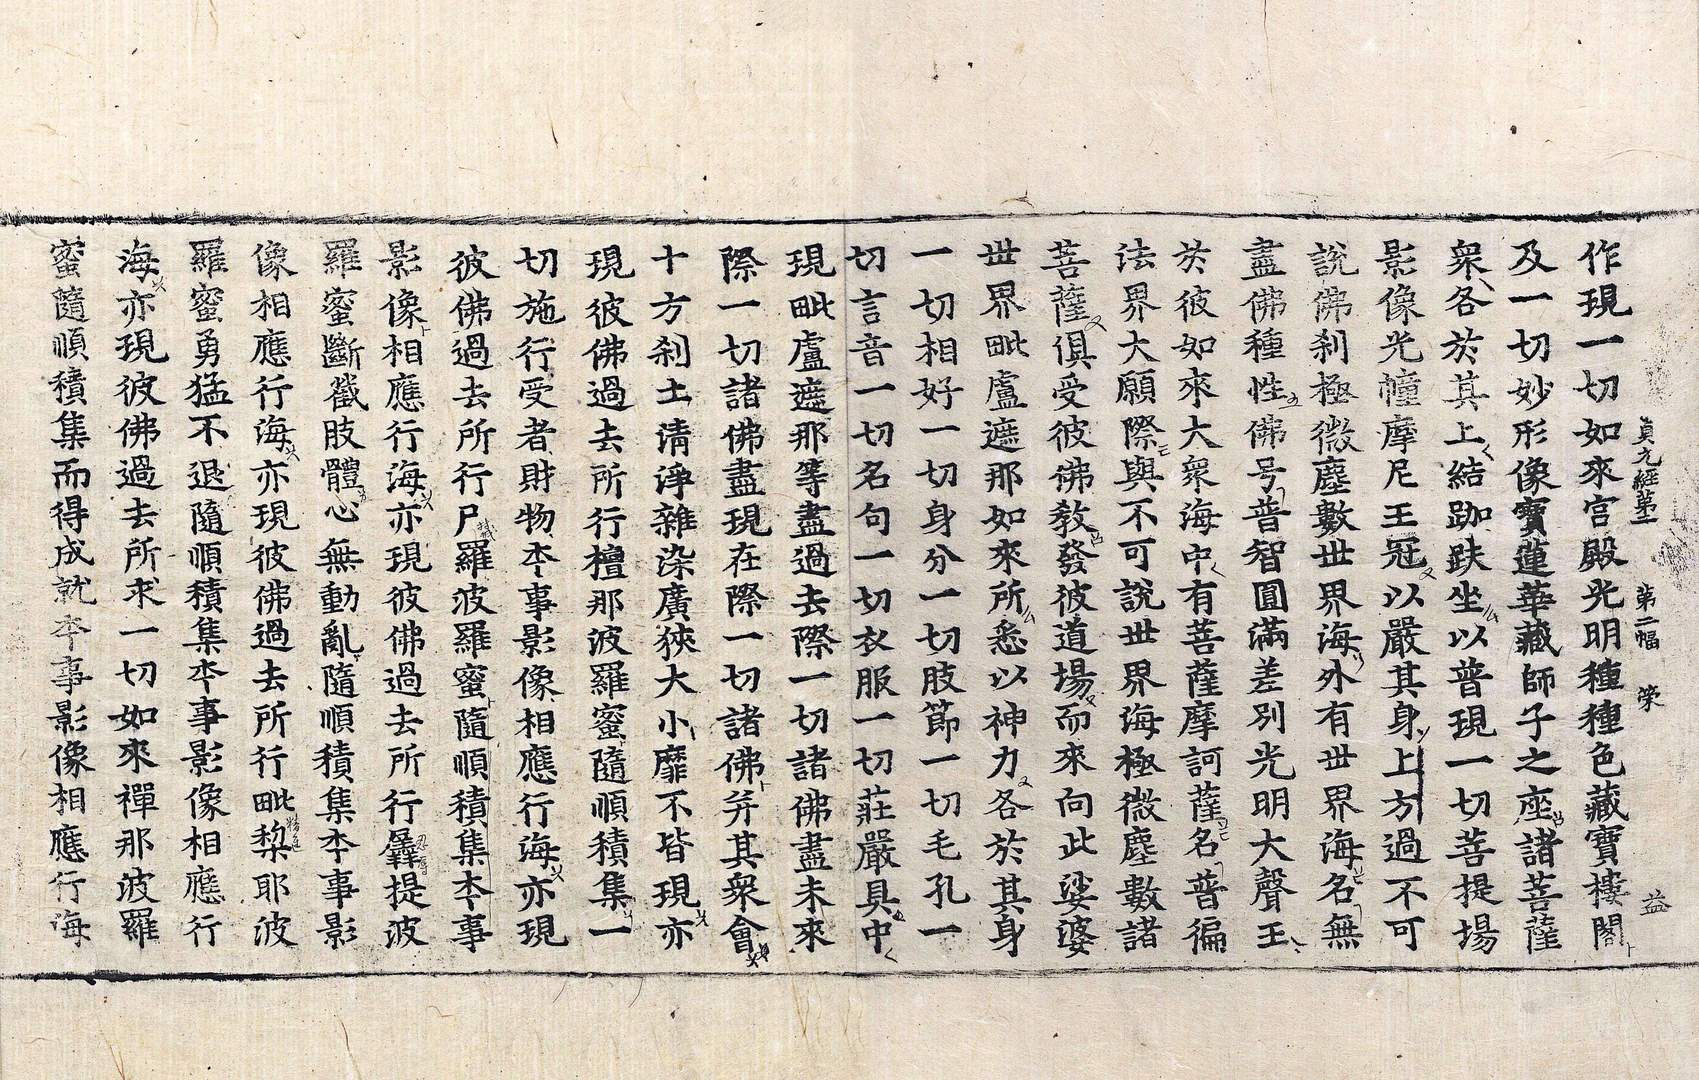 貞元經第二 第二幅 榮 益
作現一切如來宮殿光明種種色藏寶樓閣
及一切妙形像寶蓮華藏師子之座諸菩薩
衆各於其上結跏趺坐以普現一切菩提場
影像光幢摩尼王冠以嚴其身上方過不可
說佛刹極微塵數世界海外有世界海名無
盡佛種性佛号普智圓滿差別光明大聲王
於彼如來大衆海中有菩薩摩訶薩名普徧
法界大願際與不可說世界海極微塵數諸
菩薩俱受彼佛敎發彼道場而來向此娑婆
世界毗盧遮那如來所悉以神力各於其身
一切相好一切身分一切肢節一切毛孔一
切言音一切名句一切衣服一切莊嚴具中
現毗盧遮那等盡過去際一切諸佛盡未來
際一切諸佛盡現在際一切諸佛并其衆會
十方刹土清淨雜染廣狹大小靡不皆現亦
現彼佛過去所行檀那波羅蜜隨順積集一
切施行受者財物夲事影像相應行海亦現
彼佛過去所行尸羅波羅蜜隨順積集夲事
影像相應行海亦現彼佛過去所行羼提波
羅蜜斷截肢體心無動亂隨順積集夲事影
像相應行海亦現彼佛過去所行毗梨耶波
羅蜜勇猛不退隨順積集夲事影像相應行
海亦現彼佛過去所求一切如來禪那波羅
蜜隨順積集而得成就夲事影像相應行海